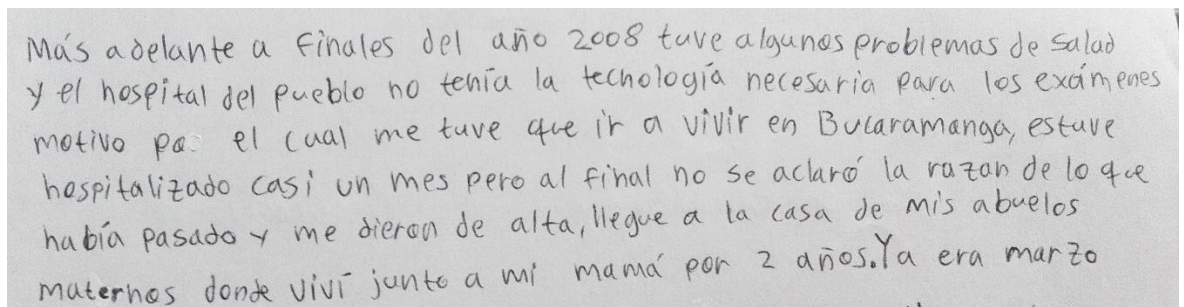 Más adelante a finales del año 2008 tuve algunos problemas de salad
y el hospital del pueblo no tenía la technología necesaria para los exámenes
motivo po el cual me tuve que ir a vivir en Bucaramanga, estuve
hospitalizado casi un mes pero al final no se aclaró la razon de lo que
había pasado y me dieron de alta, llegue a la casa de mis abuelos
maternos donde viví junto a mi mamá por 2 años. Ya era marzo